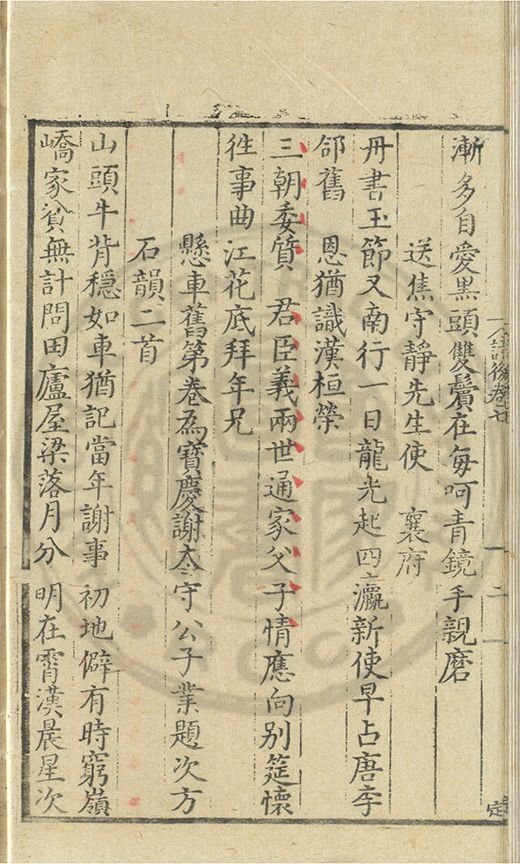 漸多自愛黑頭雙鬢在每呵青鏡手親磨
送焦守靜先生使 襄府
丹書玉節又南行一日龍光起四瀛新使早占唐李
郃舊 恩猶識漢桓榮
三朝委質 君臣義兩世通家父子情應向別筵懷
徃事曲江花底拜年兄
懸車舊第卷爲寶慶謝太守公子業題次方
石韻二首
山頭牛背穩如車猶記當年謝事初地僻有時窮嶺
嶠家貧無計問田廬屋梁落月分明在霄漢晨星次